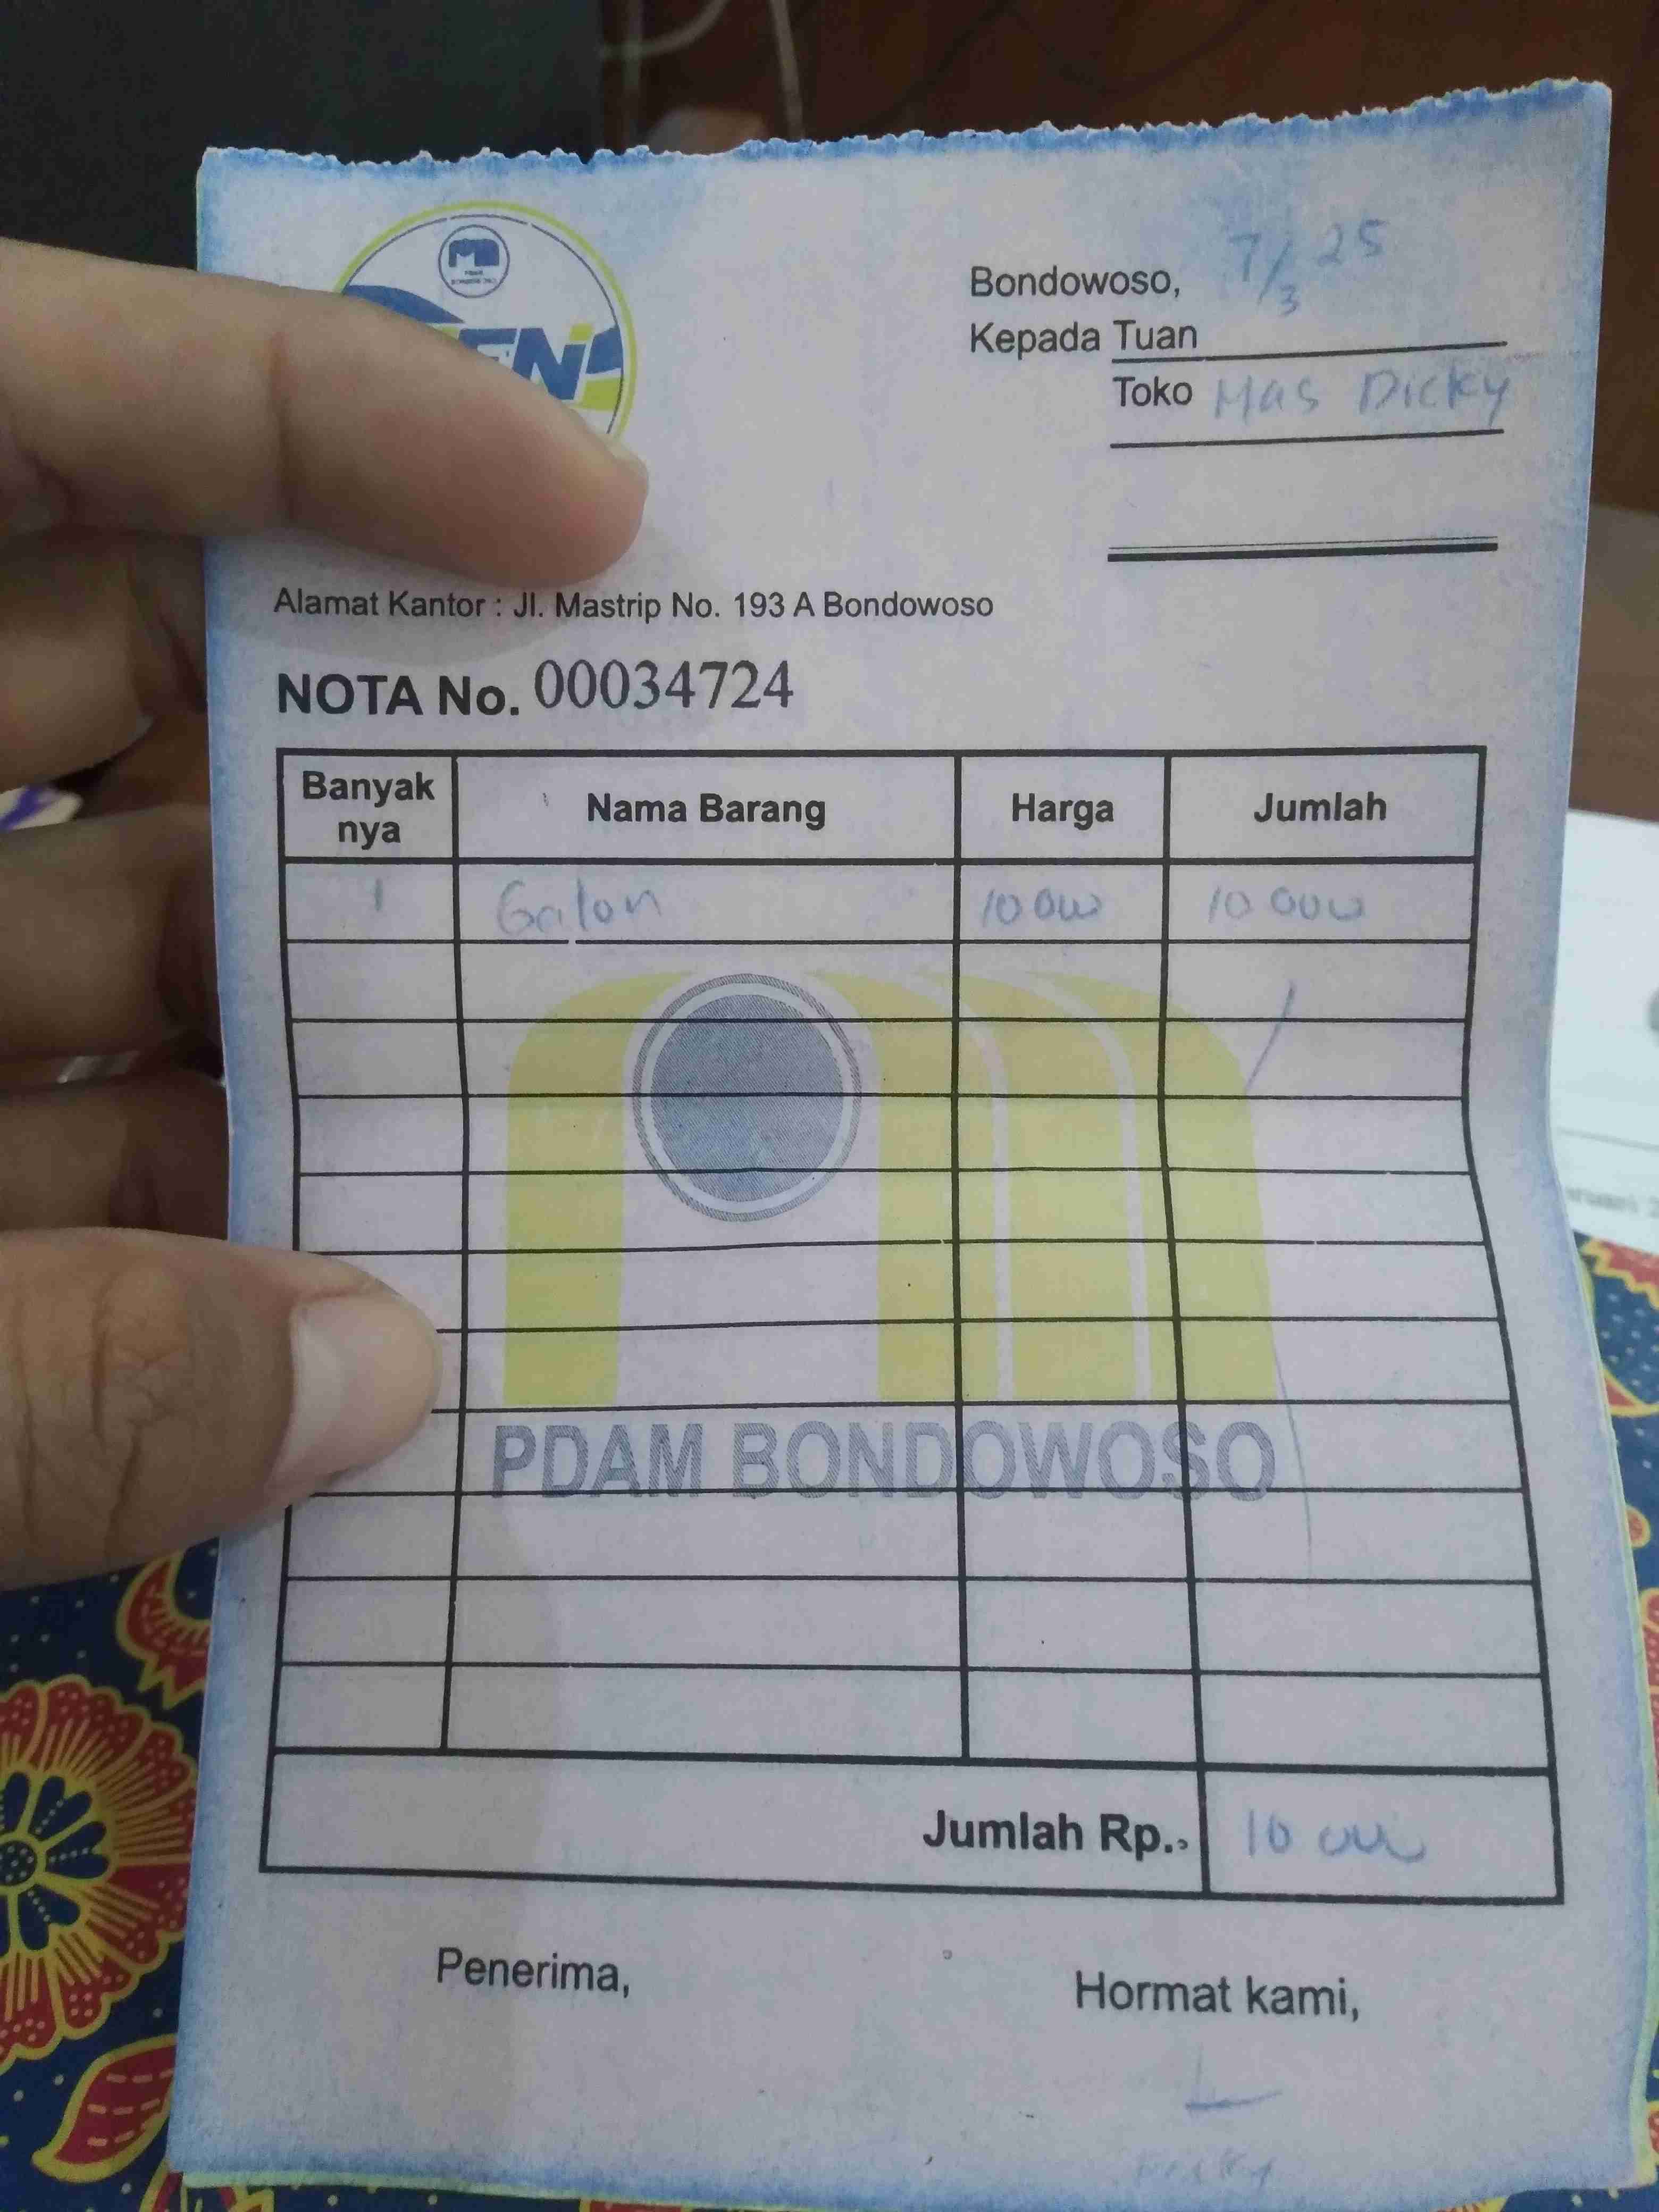 Bondowoso, 7/3 25
Kepada Tuan
Toko Mas Dicky
Alamat Kantor : Jl. Mastrip No. 193 A Bondowoso
NOTA No. 00034724
Banyak nya Nama Barang Harga Jumlah
1 Galon 10 000 10 000
PDAM BONDOWOSO
Jumlah Rp. 10 000
Penerima, Hormat kami,